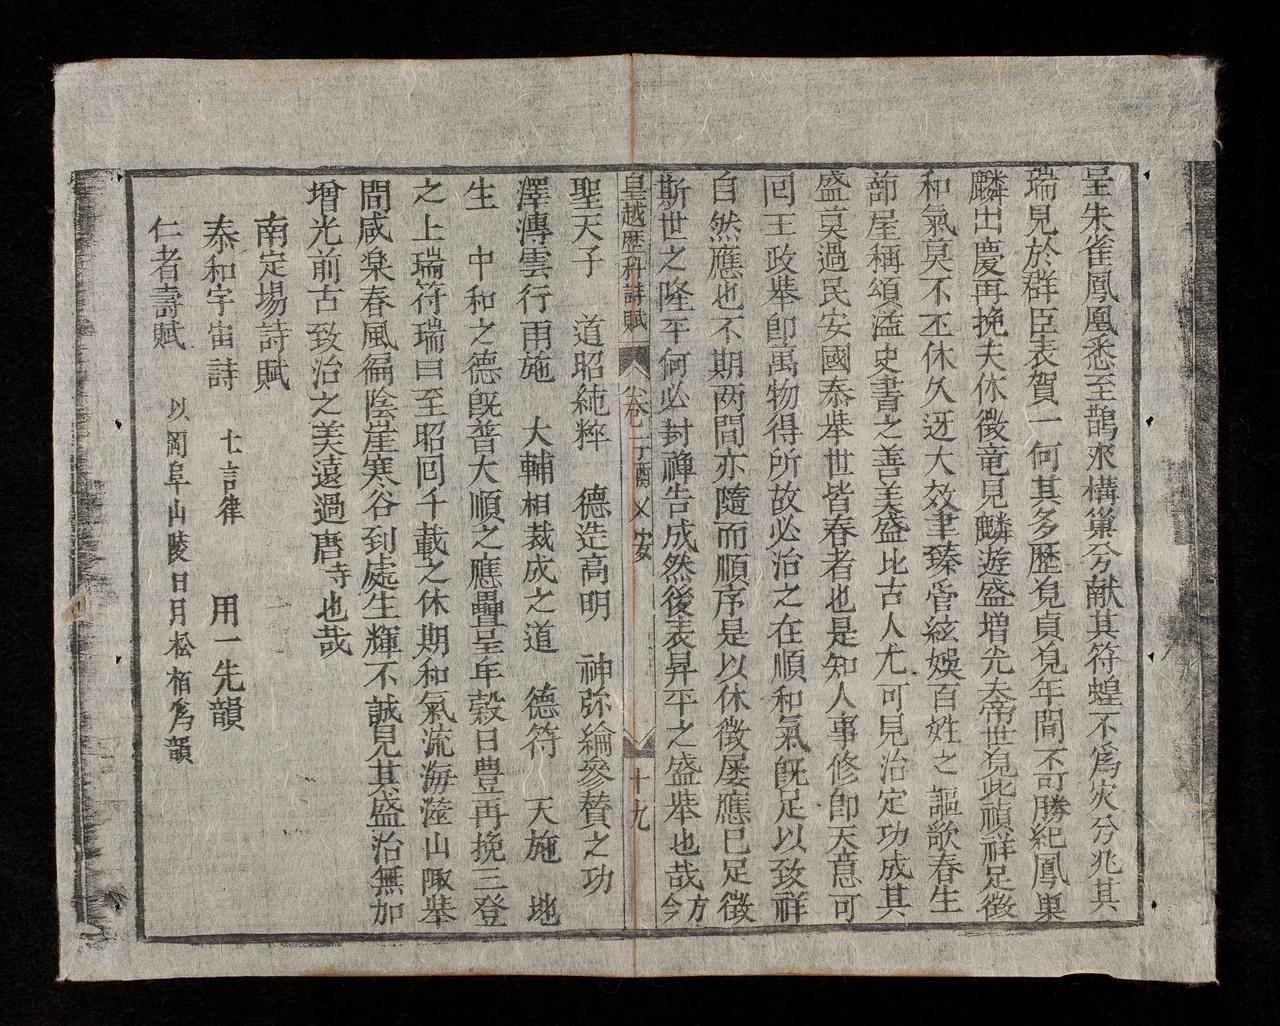 呈朱雀鳳凰悉至鵲來構巢兮献其符蝗不爲灾兮兆其
瑞見於群臣表賀一何其多歷覓貞覓年間不可勝紀鳳巢
麟出慶再挽夫休徵竜見麟遊盛增光夫帝世覓此禎祥足徵
和氣莫不丕休久迓大效聿臻管絃娛百姓之謳歌春生
蔀屋稱頌溢史書之善美盛比古人尤可見治定功成其
盛莫過民安國泰舉世皆春者也是知人事修卽天意可
回王政舉卽萬物得所故必治之在順和氣旣足以致祥
自然應也不期两間亦隨而順序是以休徵屡應已足徵
斯世之隆平何必封禅告成然後表昇平之盛舉也哉方今
皇越歷科詩賦 卷一 丁酉 乂安 十九
聖天子 道昭純粹 德造高明 神弥綸參賛之功
澤溥雲行雨施 大輔相裁成之道 德符 天施 地
生 中和之德旣普大順之應疊呈年穀日豊再挽三登
之上瑞符瑞曰至昭回千載之休期和氣流海陸山陬舉
間咸樂春風徧陰崖寒谷到處生輝不誠見其盛治無加
增光前古致治之美遠過唐時也哉
南定場詩賦
泰和宇宙詩 七言律 用一先韻
仁者壽賦 以岡阜山陵日月松栢爲韻